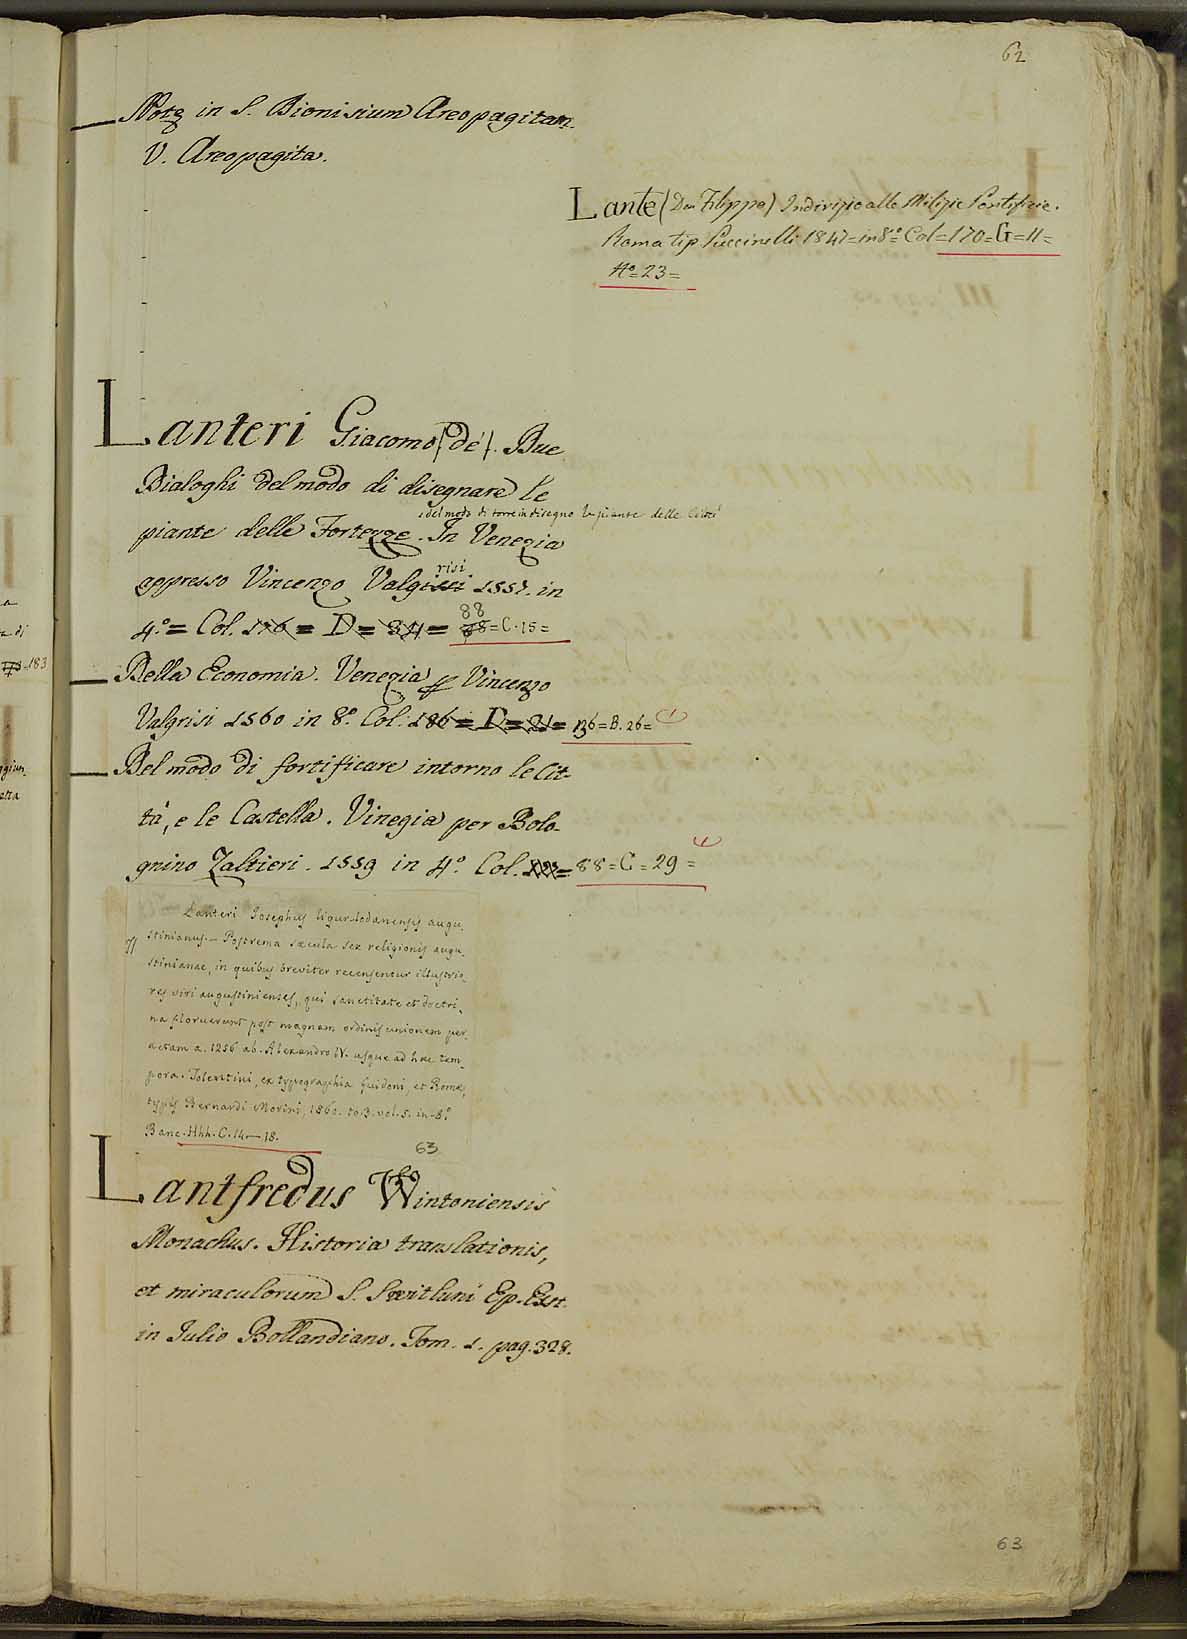 62
Notæ in S. Dionisium Areopagitam.
V. Areopagita.
Lante (Don Filippo) Indirizzo alle Milizie Pontificie.
Roma tip. Puccinelli 1847 = in 8° Col = 170 = G = 11 =
N° = 23 =
Lanteri Giacomo (de'). Due
Dialoghi del modo di disegnare le
e del modo di torre in disegno le piante delle Città
piante delle Fortezze. In Venezia
risi
appresso Vincenzo Valgissi 1557. in
88
4.° = Col. 176 = D = 34 = 78 = C. 15 =
Della Economia. Venezia Vincenzo
Valgrisi 1560 in 8.° Col. 186 = D = 21 = 136 = B. 26 =
Del modo di fortificare intorno le Cit-
tà, e le Castella. Vinegia per Bolo-
gnino Zaltieri. 1559 in 4.° Col. = 88 = C = 29 =
Lanteri Josephus ligur-lodanensis augu-
stinianus. — Postrema sæcula sex religionis augu-
stinianae, in quibus breviter recensentur illustrio-
res viri augustinienses, qui sanctitate et doctri-
na floruerunt post magnam ordinis unionem per-
actam a. 1256 ab. Alexandro IV. usque ad hæc tem-
pora. Tolentini, ex typographia Guidoni, et Romæ,
typis Bernardi Morini, 1860. to. 3. vol. 5. in-8.°
Banc. Hhh. C. 14 — 18.
63
Lantfredus Wintoniensis
Monachus. Historia translationis,
et miraculorum S. Switluni Ep. Ext.
in Julio Bollandiano. Tom. 1. pag. 328.
63